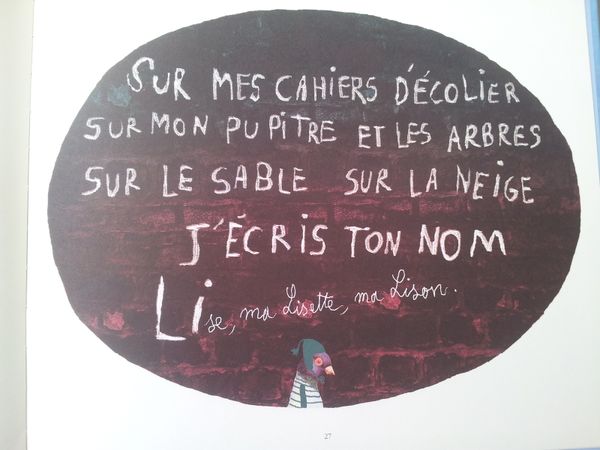 SUR MES CAHIERS D'ÉCOLIER
SUR MON PUPITRE ET LES ARBRES
SUR LE SABLE SUR LA NEIGE
J'ÉCRIS TON NOM
Lise, ma Lisette, ma Lison.
27